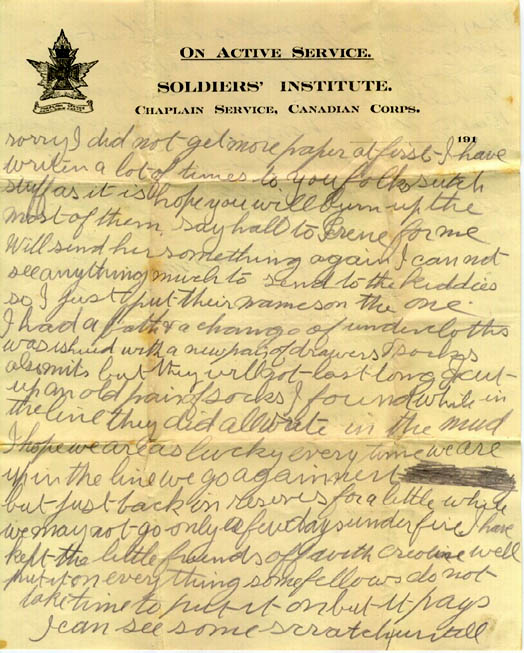 ON ACTIVE SERVICE.
SOLDIERS' INSTITUTE.
CHAPLAIN SERVICE, CANADIAN CORPS.
191
sorry I did not get more paper at first I have
writen a lot of times to you folks sutch
stuff as it is hope you will burn up the
most of them, say hall to Irene for me
Will send her something again I can not
see anything much to send to the kiddies
so I just put their names on the one.
I had a bath & a change of undercloths
was issued with a new pair of drawers & socks
also mits but they will not last long I cut
up an old pair of socks I found while in
the line they did allwrite in the mud
I hope we are as lucky every time we are
up in the line we go again next
but just back in reserves for a little while
we may not go only a few days under fire, I have
kept the little friends off with creoline well
put it on every thing some fellows do not
take time to put it on but it pays
I can see some scratch untill